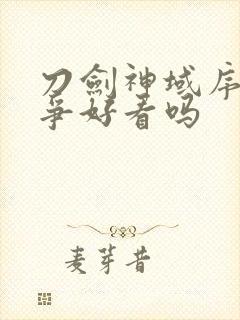 刀劍神域序
爭好看吗
麦芽昔